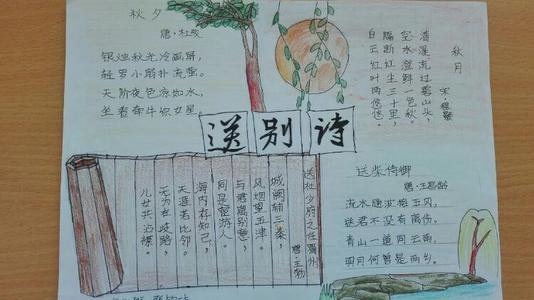 秋夕
唐·杜牧
银烛秋光冷画屏,
轻罗小扇扑流萤。
天阶夜色凉如水,
坐看牵牛织女星。
秋月
宋·程颢
清溪流过碧山头,
空水澄鲜一色秋。
隔断红尘三十里,
白云红叶两悠悠。
送别诗
送杜少府之任蜀州
唐·王勃
城阙辅三秦,
风烟望五津。
与君离别意,
同是宦游人。
海内存知己,
天涯若比邻。
无为在歧路,
儿女共沾襟。
送柴侍御
唐·王昌龄
流水通波接武冈,
送君不觉有离伤。
青山一道同云雨,
明月何曾是两乡。